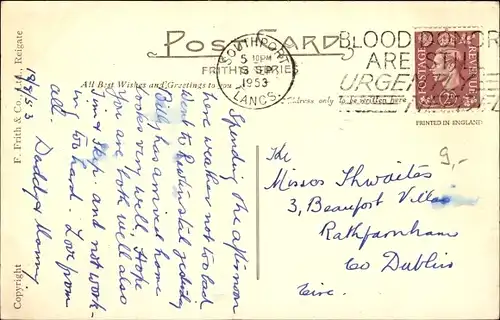 POST CARD
FRITH'S SERIES
All Best Wishes and Greetings to you
Address only to be written here
SOUTHPORT
5 PM
SEP
1953
LANCS.
BLOOD DONORS
ARE STILL
URGENTLY
POSTAGE
REVENUE
PRINTED IN ENGLAND
Copyright
F. Frith & Co., Ltd., Reigate
Spending the afternoon
here weather not too bad
Went to
Billy has arrived home
looks very well, Hope
you are both well also
Jim & and not work-
ing too hard. Love from
all. Daddy & Mammy.
9,-
The
Misses Thwaites
3, Beaufort Villas
Rathfarnham
Co Dublin
Eire.